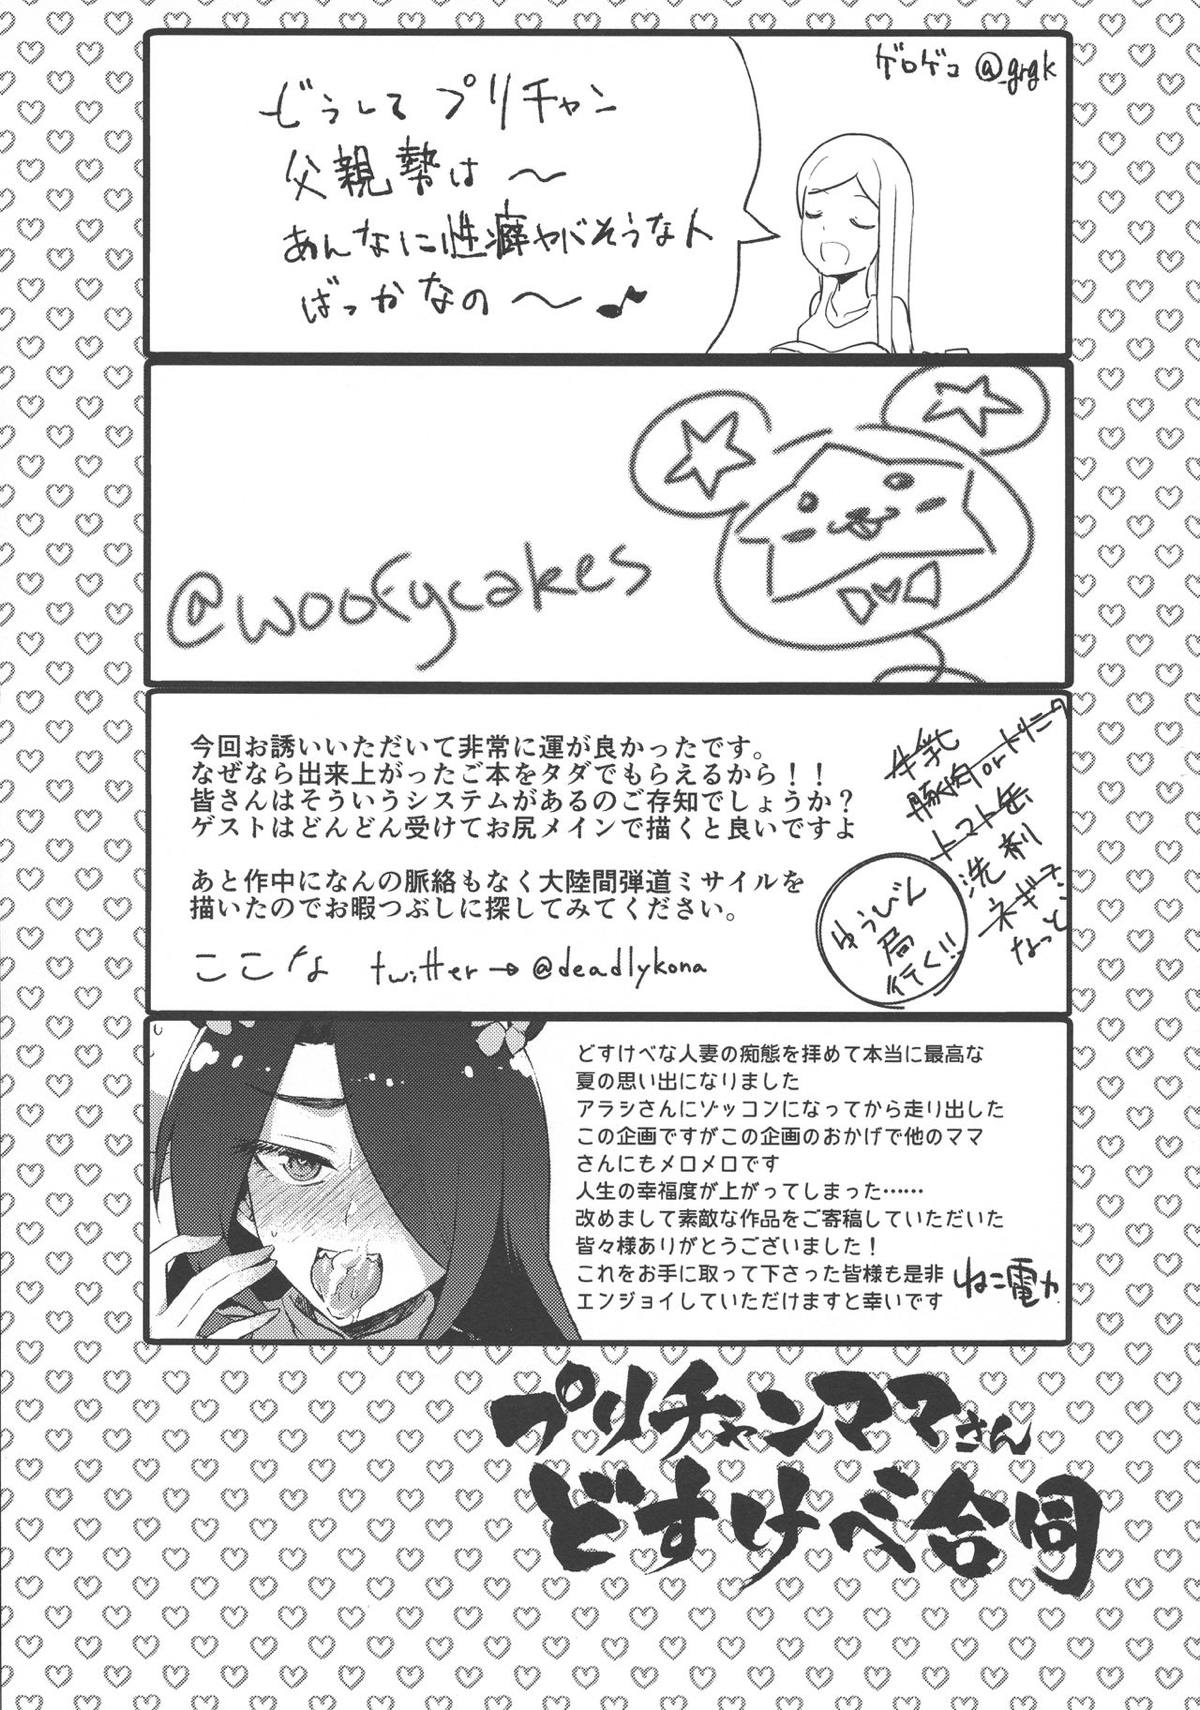 ゲロゲコ @_grgk
どうして プリチャン
父親勢は 〜
あんなに性癖ヤバそうな人
ばっかなの 〜♪
@woofycakes
今回お誘いいただいて非常に運が良かったです。
なぜなら出来上がったご本をタダでもらえるから！！
皆さんはそういうシステムがあるのご存知でしょうか？
ゲストはどんどん受けてお尻メインで描くと良いですよ
あと作中になんの脈絡もなく大陸間弾道ミサイルを
描いたのでお暇つぶしに探してみてください。
ここな twitter→@deadlykona
牛乳
豚肉orトリニク
トマト缶
洗剤
ネギ
なっとう
ゆうびん
局
行く!!
どすけべな人妻の痴態を拝めて本当に最高な
夏の思い出になりました
アラシさんにゾッコンになってから走り出した
この企画ですがこの企画のおかげで他のママ
さんにもメロメロです
人生の幸福度が上がってしまった……
改めまして素敵な作品をご寄稿していただいた
皆々様ありがとうございました！
これをお手に取って下さった皆様も是非
エンジョイしていただけますと幸いです
ねこ電力
プリチャンママさん
どすけべ合同